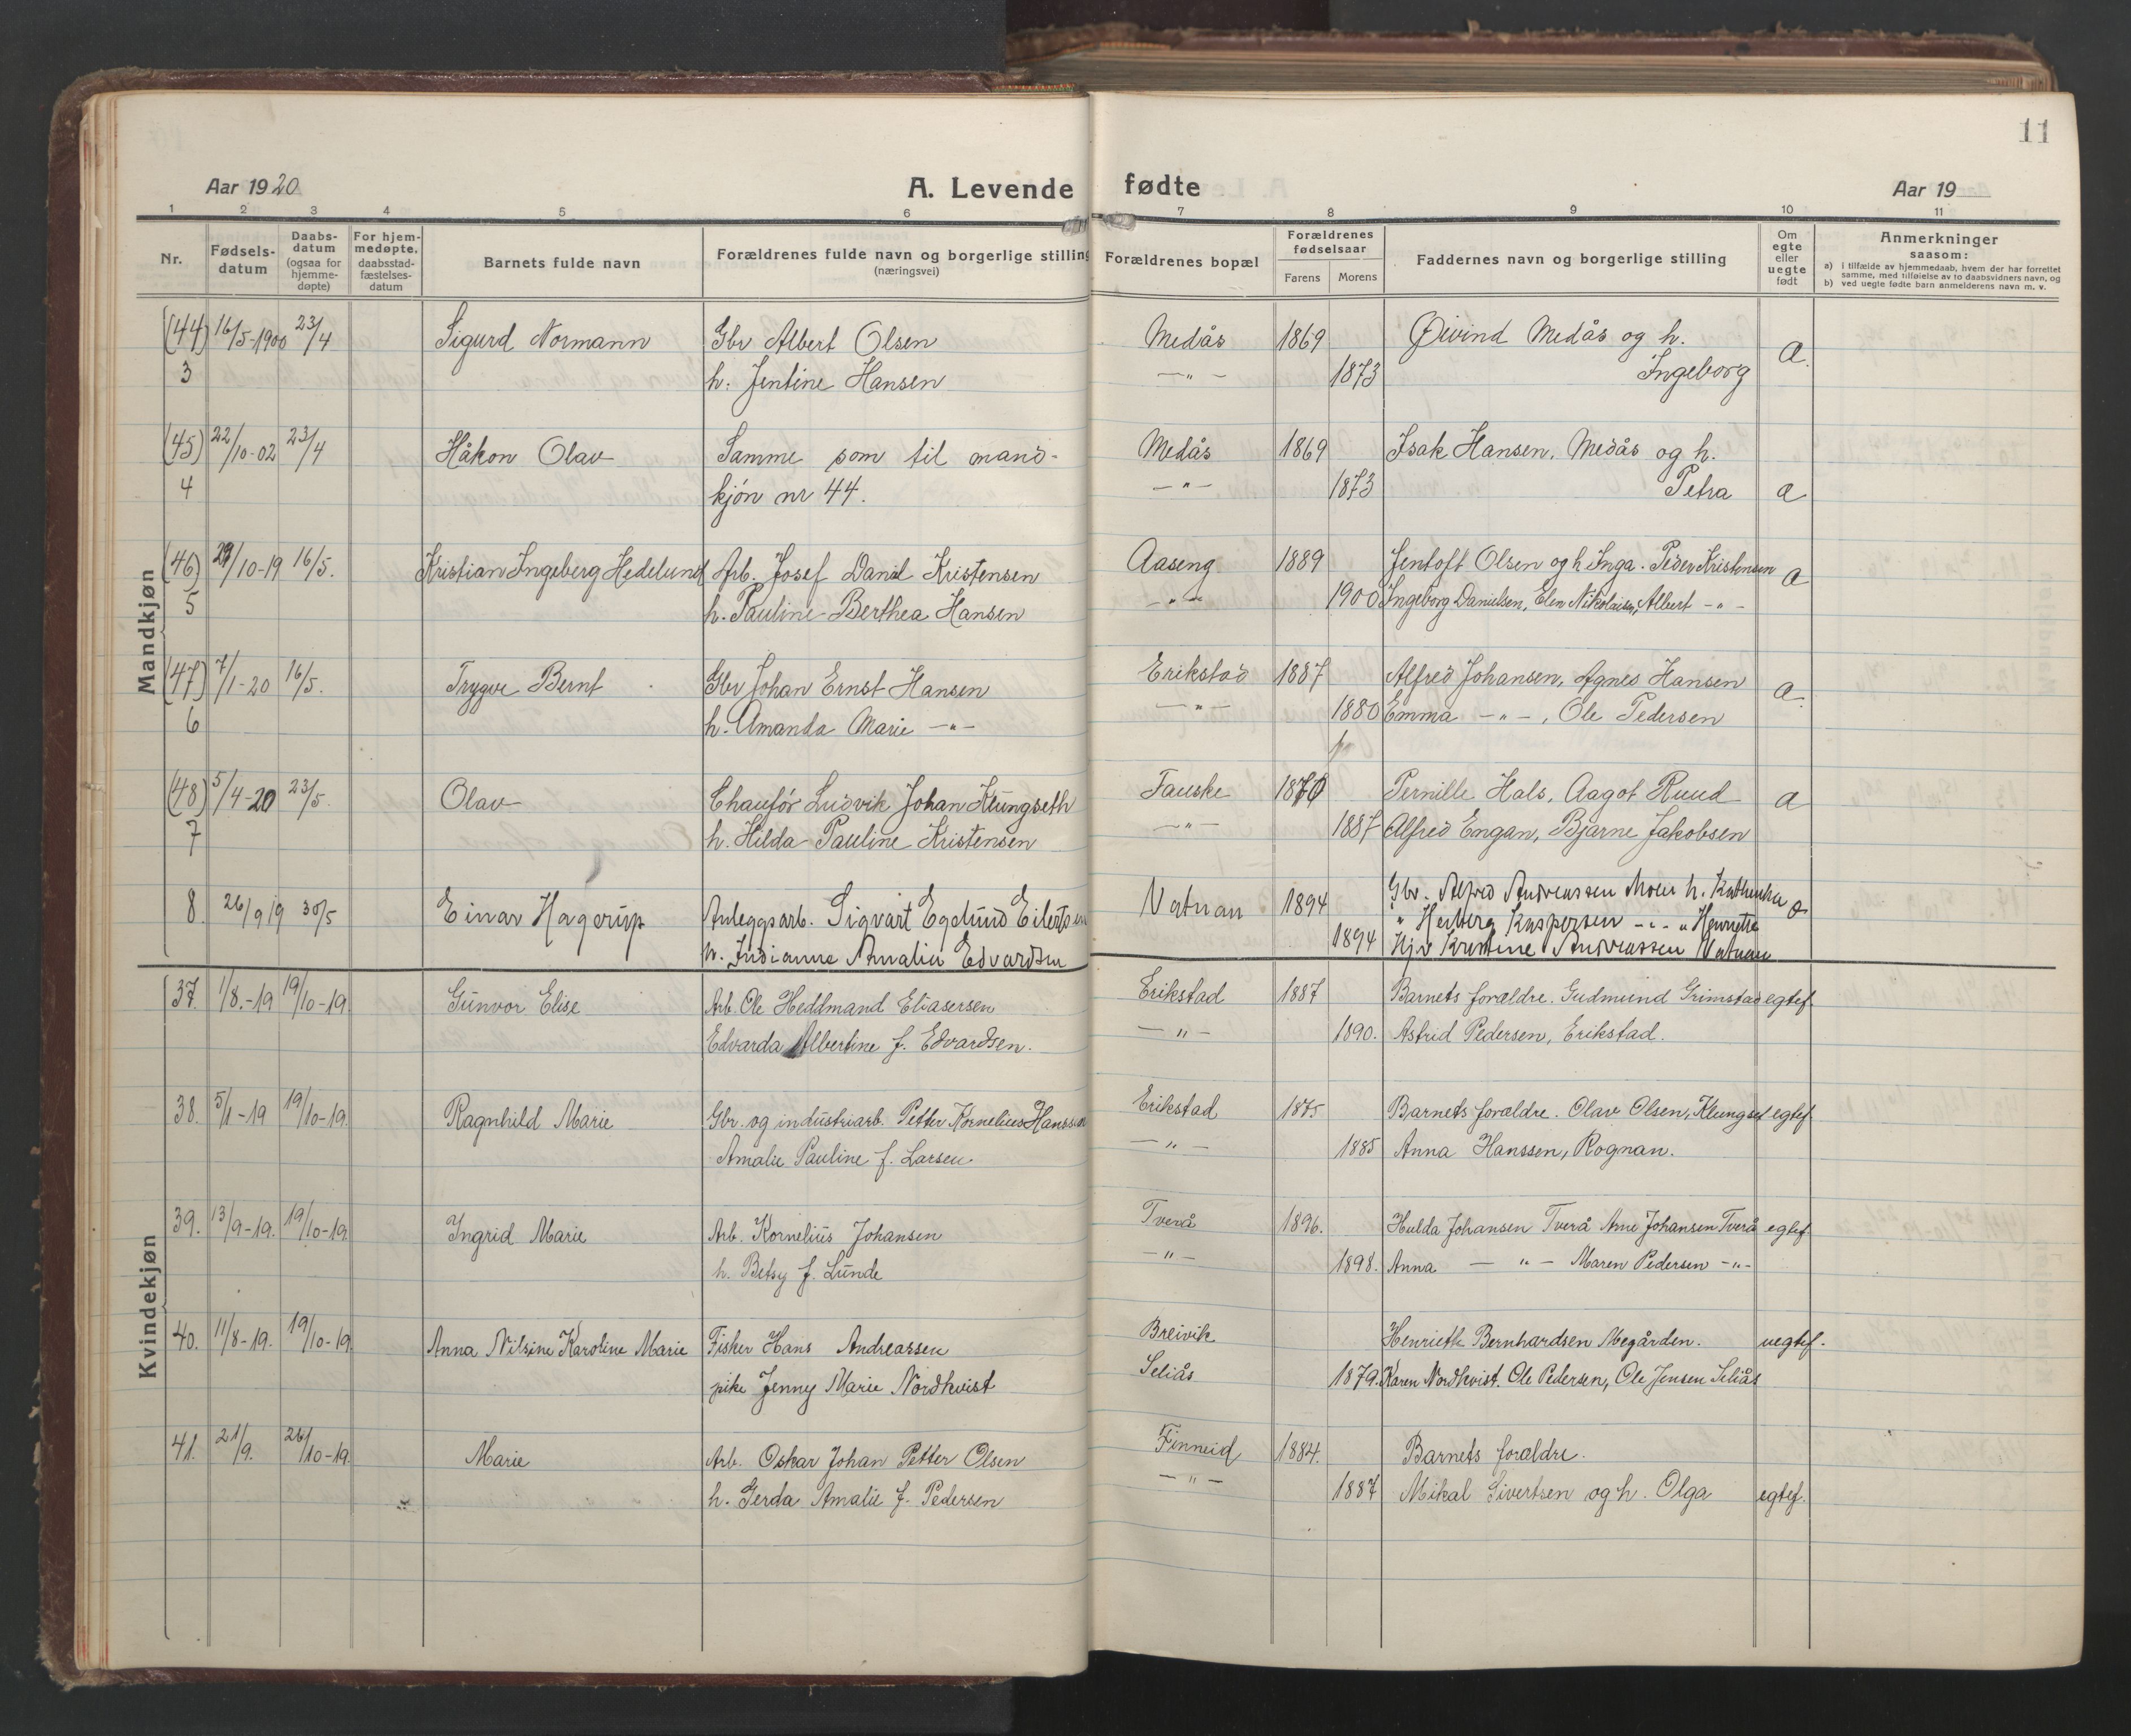 11
Aar 1920 A. Levende fødte Aar 19
1 2 3 4 5 6 7 8 9 10 11
Nr. Fødsels-datum Daabs-datum (ogsaa for hjemme-døpte) For hjem-medøpte, daabsstad-fæstelses-datum Barnets fulde navn Forældrenes fulde navn og borgerlige stilling (næringsvei) Forældrenes bopæl Forældrenes fødselsaar Farens Morens Faddernes navn og borgerlige stilling Om egte eller uegte født Anmerkninger saasom:
a) i tilfælde av hjemmedaab, hvem der har forrettet samme, med tilføielse av to daabsvidners navn, og
b) ved uegte fødte barn anmelderens navn m. v.
Mandkjøn
(44) 16/5-1900 23/4 Sigurd Normann Gbr Albert Olsen Medås 1869 Øivind Medås og h. a.
3 h. Jentine Hansen -"- 1873 Ingeborg
(45) 22/10-02 23/4 Håkon Olav Samme som til mand- Medås 1869 Isak Hansen, Medås og h.
4 kjön nr 44. -"- 1873 Petra a
(46) 10-19 16/5. Kristian Ingeberg Hedelund Arb. Josef Daniel Kristensen Aaseng 1889 Jentoft Olsen og h Inga. Peder Kristensen a
5 h. Pauline Berthea Hansen -"- 1900 Ingeborg Danielsen, Elen Nikolaisen, Albert -"-
(47) 7/1-20 16/5. Trygve Bernt Gbr Johan Ernst Hansen Erikstad 1887 Alfred Johansen, Agnes Hansen a.
6 h. Amanda Marie -"- -"- 1880 Emma -"-, Ole Pedersen
(48) 5/4-20 23/5. Olav Chauför Ludvik Johan Klungseth Fauske Pernille Hals, Aagot Ruud a
7 h. Hilda Pauline Kristensen -"- 1887 Alfred Engan, Bjarne Jakobsen
8. 26/9 19 30/5 Einar Hagerup Anleggsarb. Sigvart Egelund Eilertsen Vatnan 1894 Gbr. Alfred Andreassen Moen h. Kathinka a
" Herberg Kaspersen -"- " Henrette
h. Indianne Amalie Edvardsen 1894 Kristine Andreassen Vatnan
Kvindekjøn
37. 1/8.-19 19/10-19. Gunvor Elise Arb. Ole Heddmand Eliasersen Erikstad 1887 Barnets forældre. Gudmund Grimstad egtef
Edvarda Albertine f. Edvardsen. -"- 1890. Astrid Pedersen, Erikstad.
38. 5/1-19 19/10-19. Ragnhild Marie Gbr. og industriarb. Petter Kornelius Hanssen Erikstad 1875 Barnets forældre. Olav Olsen, Klungset egtef
Amalie Pauline f. Larsen -"- 1885 Anna Hanssen, Rognan.
39. 13/9-19. 19/10-19 Ingrid Marie Arb. Kornelius Johansen Tverå 1896. Hulda Johansen Tverå Arne Johansen Tverå egtef.
h. Betsy f. Lunde -"- 1898. Anna -"- Maren Pedersen -"-
40. 11/8-19. 19/10-19 Anna Nilsine Karoline Marie Fisker Hans Andreassen Breivik Henriette Bernhardsen Megården. uegtef.
pike Jenny Marie Nordkvist Seliås 1879. Karen Nordkvist. Ole Pedersen, Ole Jensen Seliås
41. 21/9. 26/10-19. Marie Arb. Oskar Johan Petter Olsen Finneid 1884. Barnets forældre.
h. Gerda Amalie f. Pedersen -"- 1887 Mikal Sivertsen og h. Olga egtef.